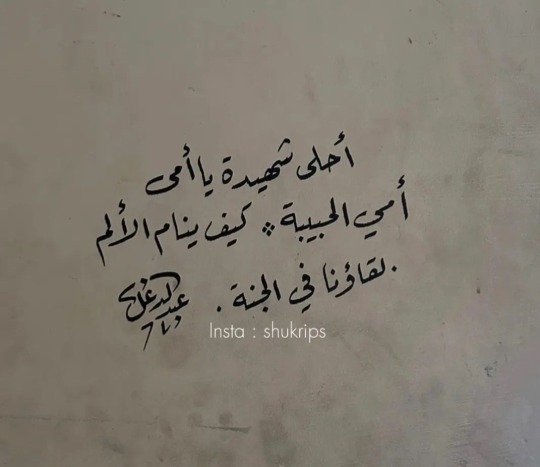 أحلى شهيدة يا أمى
أمي الحبيبة ※ كيف ينام الألم
. لقاؤنا في الجنة .
Insta : shukrips